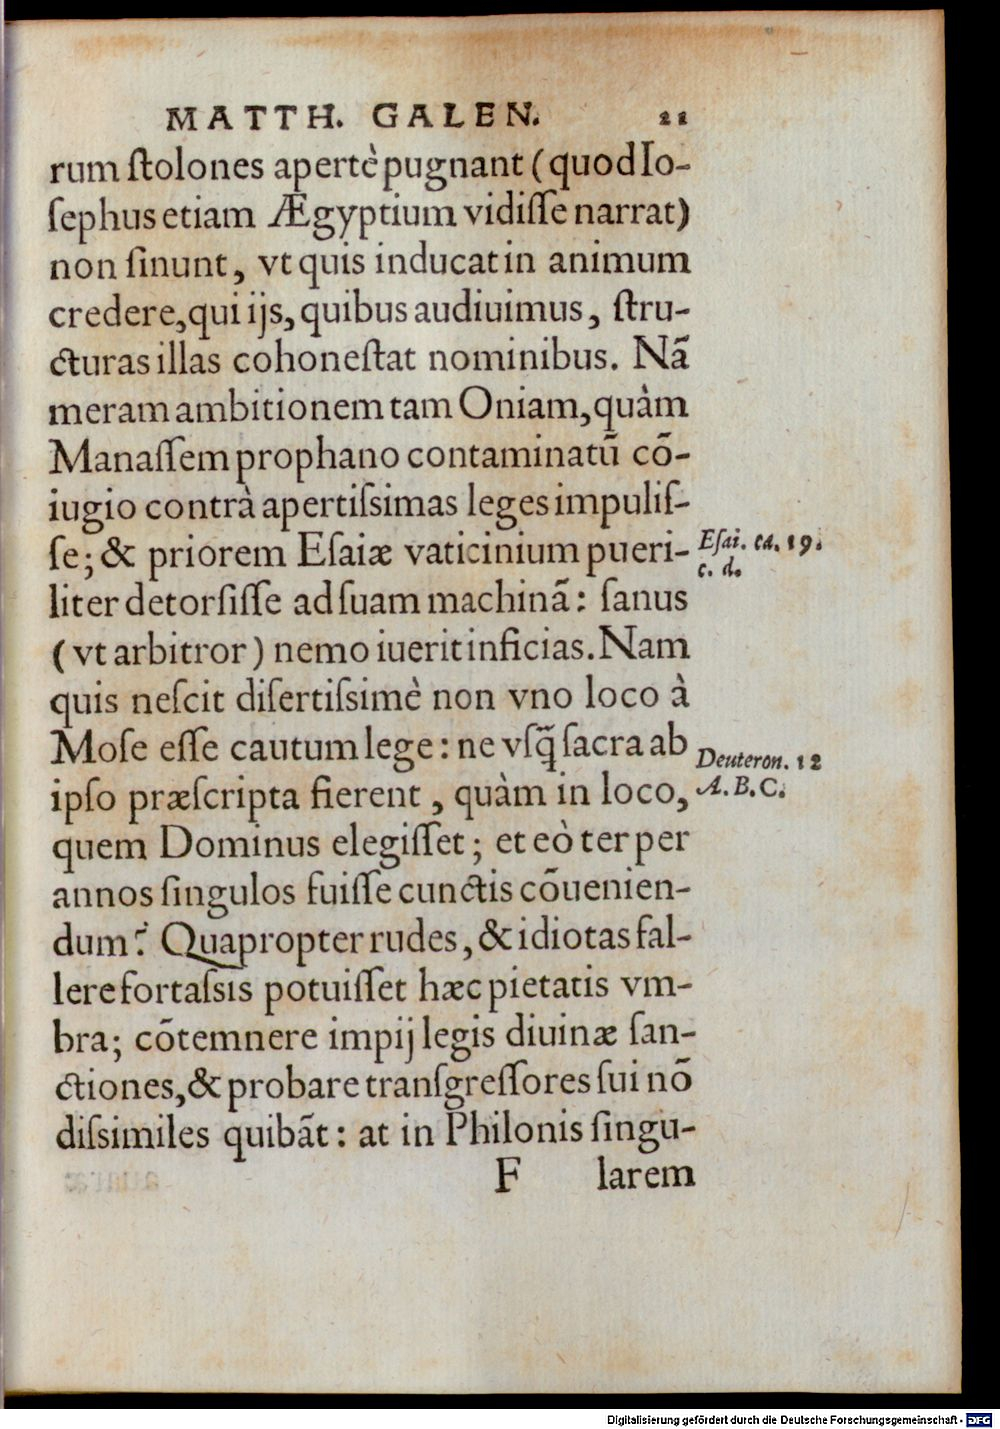 MATTH. GALEN. 21
rum ſtolones apertè pugnant (quod Io-
ſephus etiam Ægyptium vidiſſe narrat)
non ſinunt, vt quis inducat in animum
credere, qui ijs, quibus audiuimus, ſtru-
cturas illas cohoneſtat nominibus. Nã
meram ambitionem tam Oniam, quàm
Manaſſem prophano contaminatũ cõ-
iugio contrà apertiſsimas leges impuliſ-
ſe; & priorem Eſaiæ vaticinium pueri-
Eſai. ca. 19.
c. d.
liter detorſiſſe ad ſuam machinã: ſanus
(vt arbitror) nemo iuerit inficias. Nam
quis neſcit diſertiſsimè non vno loco à
Moſe eſſe cautum lege: ne vſq̃ ſacra ab
Deuteron. 12
A. B. C.
ipſo præſcripta fierent, quàm in loco,
quem Dominus elegiſſet; et eò ter per
annos ſingulos fuiſſe cunctis cõuenien-
dum? Quapropter rudes, & idiotas fal-
lere fortaſsis potuiſſet hæc pietatis vm-
bra; cõtemnere impij legis diuinæ ſan-
ctiones, & probare tranſgreſſores ſui nõ
diſsimiles quibãt: at in Philonis ſingu-
F larem
Digitalisierung gefördert durch die Deutsche Forschungsgemeinschaft - DFG